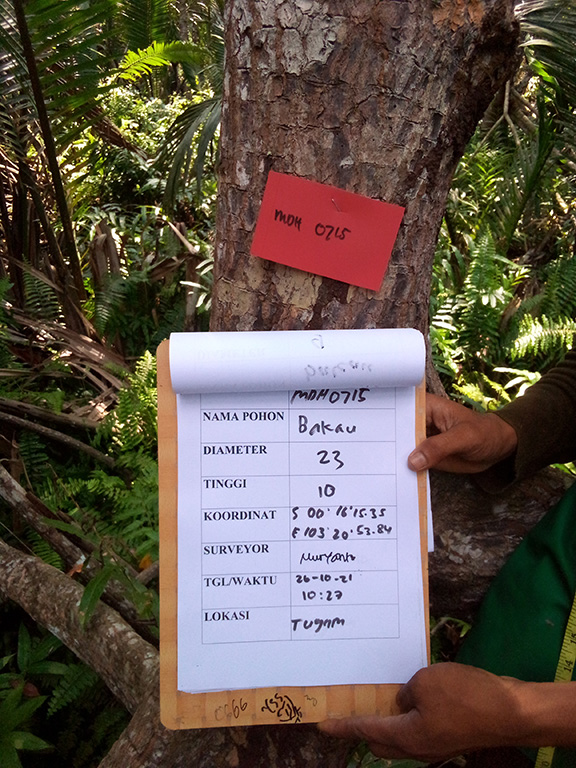 MDH 0715
MDH0715
NAMA POHON Bakau
DIAMETER 23
TINGGI 10
KOORDINAT S 00° 16' 15.35
E 103° 20' 53.84
SURVEYOR Muryanto
TGL/WAKTU 26-10-21
10:27
LOKASI Tugam